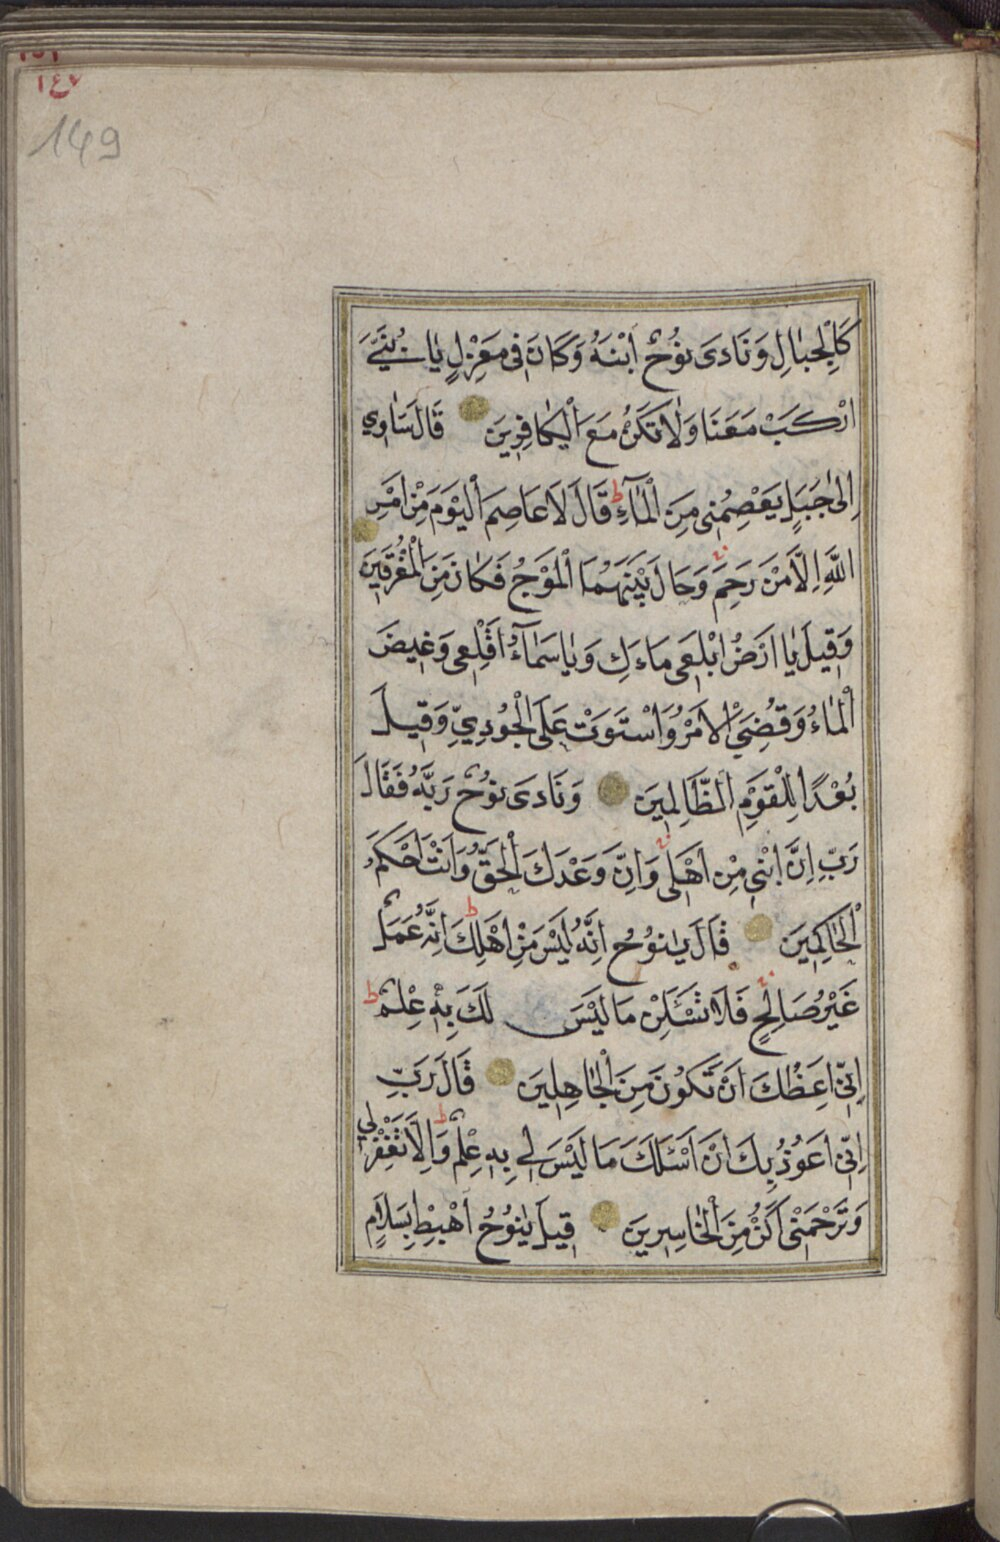 ١٤٧
149
كَالْجِبَالِ وَنَادَى نُوحٌ ابْنَهُ وَكَانَ فِى مَعْزِلٍ يَا بُنَيَّ
ارْكَبْ مَعَنَا وَلَا تَكُنْ مَعَ الْكَافِرِينَ قَالَ سَاٰوِي
اِلٰى جَبَلٍ يَعْصِمُنِى مِنَ الْمَآءِ ط قَالَ لَا عَاصِمَ الْيَوْمَ مِنْ اَمْرِ
اللَّهِ اِلَّا مَنْ رَحِمَ وَحَالَ بَيْنَهُمَا الْمَوْجُ فَكَانَ مِنَ الْمُغْرَقِينَ
وَقِيلَ يَا اَرْضُ ابْلَعِى مَاءَكِ وَيَا سَمَآءُ اَقْلِعِى وَغِيضَ
الْمَاءُ وَقُضِيَ الْاَمْرُ وَاسْتَوَتْ عَلَى الْجُودِيِّ وَقِيلَ
بُعْدًا لِلْقَوْمِ الظَّالِمِينَ وَنَادَى نُوحٌ رَبَّهُ فَقَالَ
رَبِّ اِنَّ ابْنِي مِنْ اَهْلِى وَاِنَّ وَعْدَكَ الْحَقُّ وَاَنْتَ اَحْكَمُ
الْحَاكِمِينَ قَالَ يَا نُوحُ اِنَّهُ لَيْسَ مِنْ اَهْلِكَ ط اِنَّهُ عَمَلٌ
غَيْرُ صَالِحٍ فَلَا تَسْـَٔلْنِ مَا لَيْسَ لَكَ بِهِ عِلْمٌ ط
اِنِّى اَعِظُكَ اَنْ تَكُونَ مِنَ الْجَاهِلِينَ قَالَ رَبِّ
اِنِّى اَعُوذُ بِكَ اَنْ اَسْـَٔلَكَ مَا لَيْسَ لِى بِهِ عِلْمٌ ط وَاِلَّا تَغْفِرْ لِى
وَتَرْحَمْنِى اَكُنْ مِنَ الْخَاسِرِينَ قِيلَ يَا نُوحُ اهْبِطْ بِسَلَامٍ